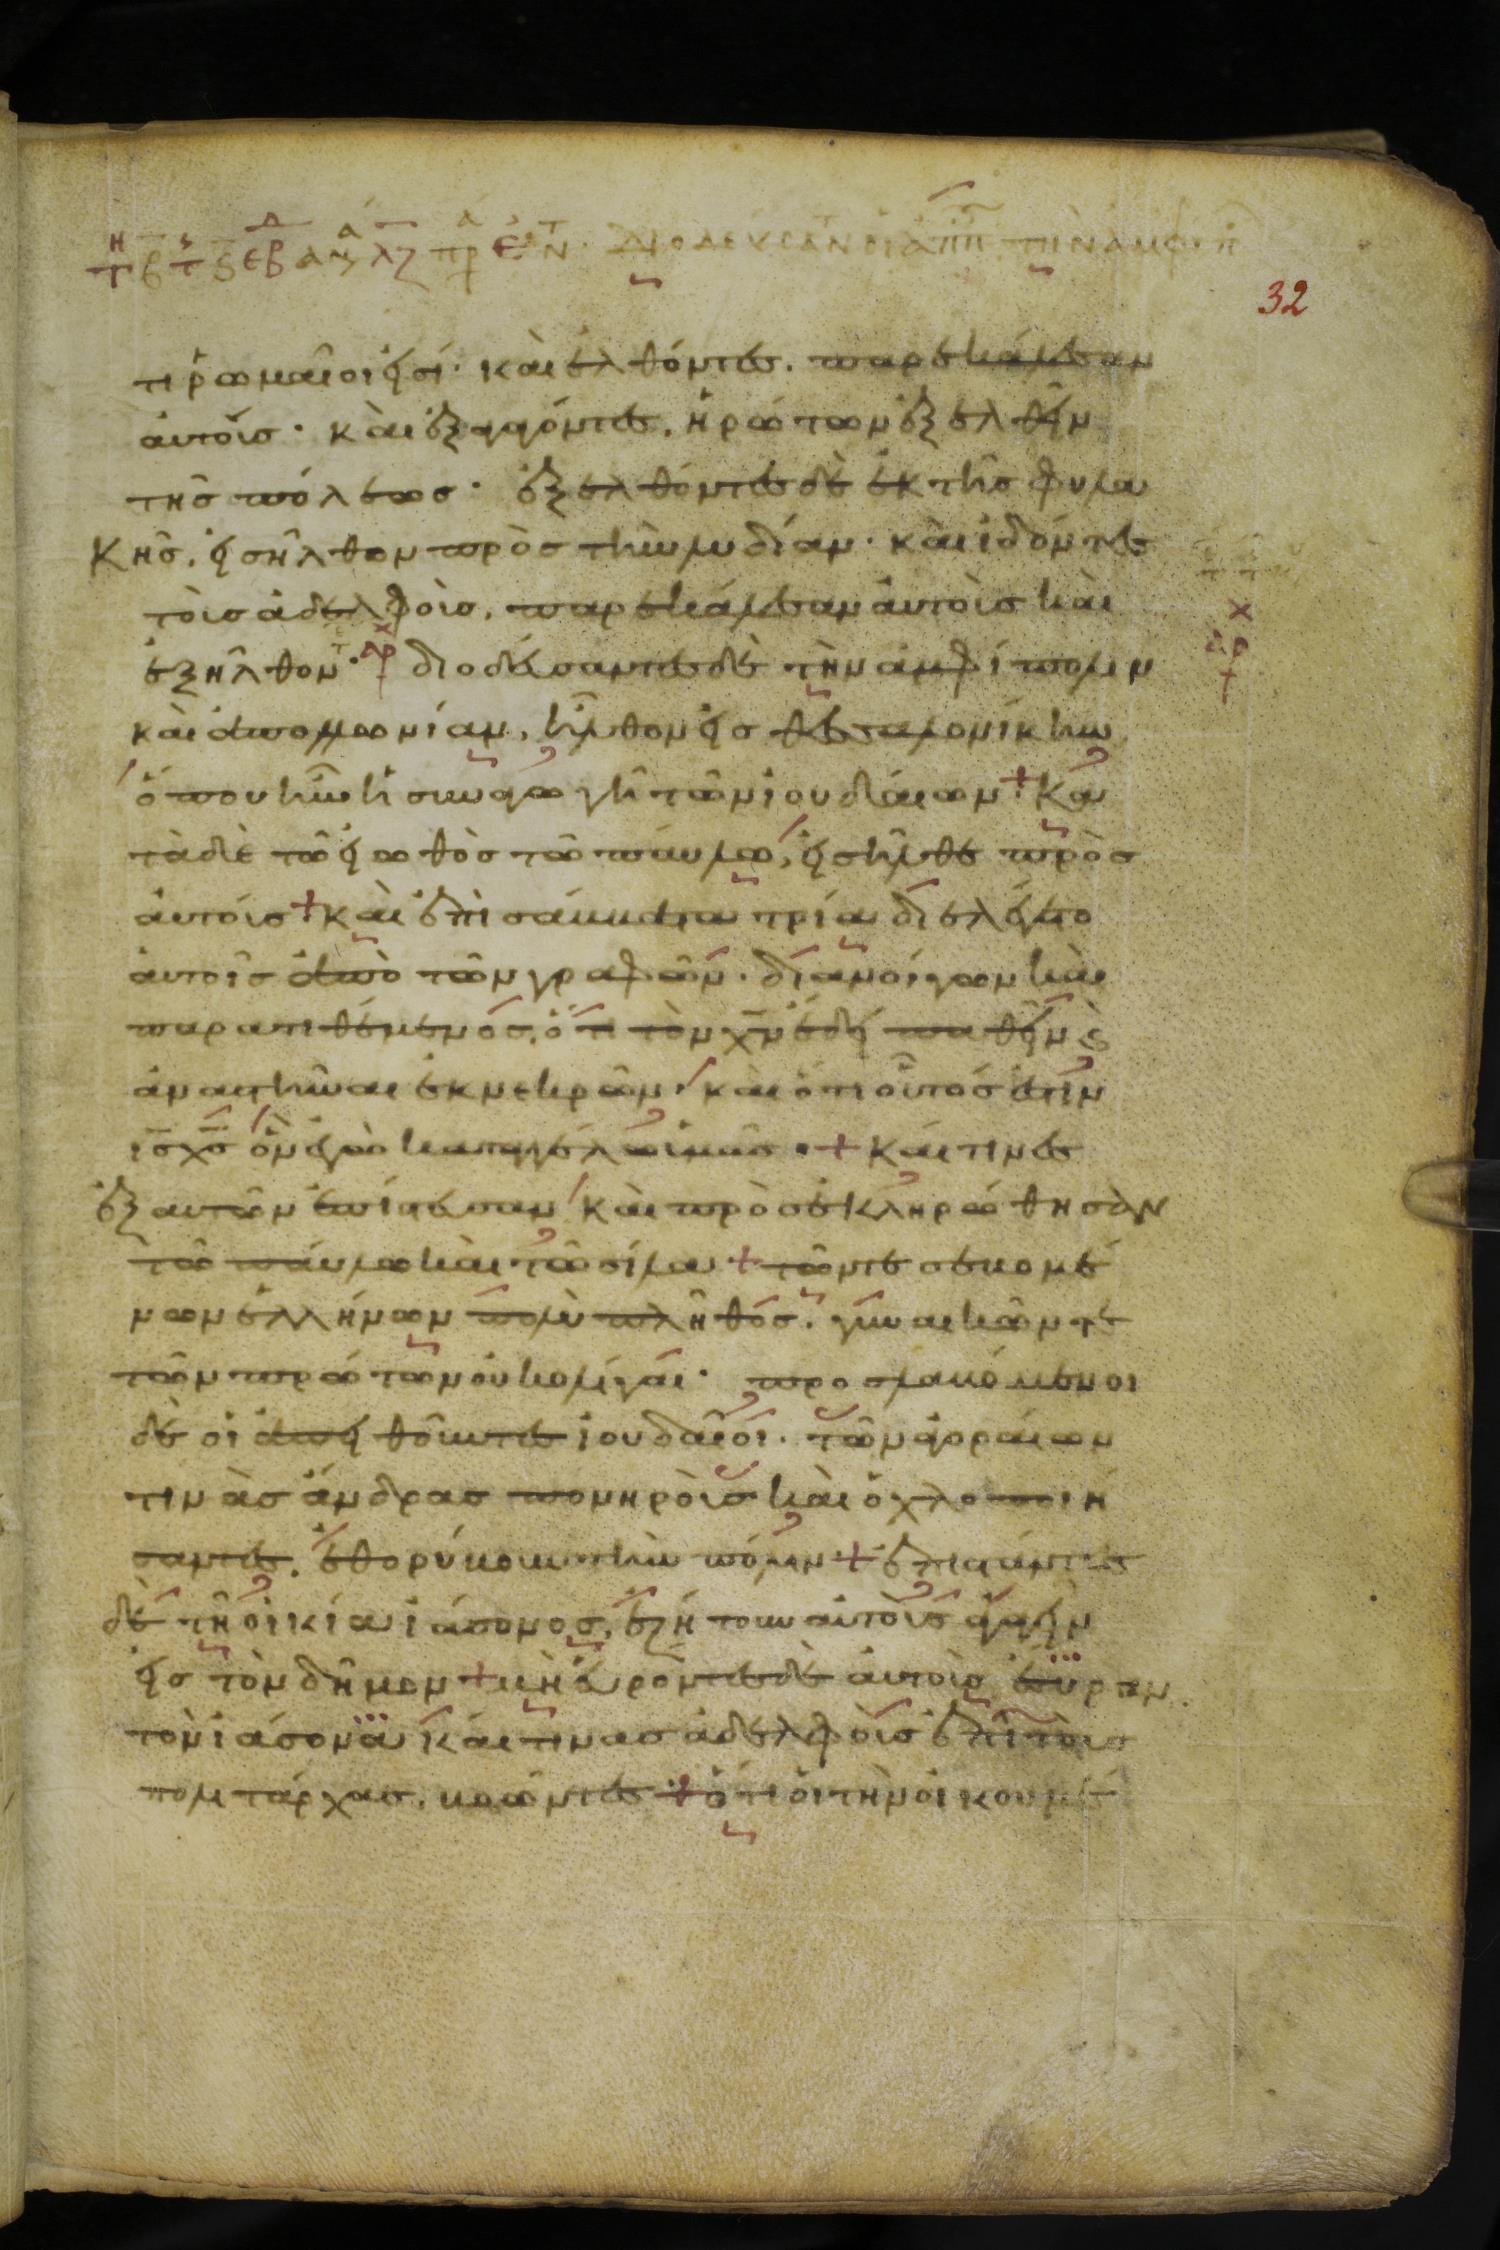 32
τι ῥωμαῖοι εἰσί· καὶ ἐλθόντες, παρεκάλεσαν
ἀυτοὺσ· καὶ ἐξαγαγόντες, ἠρώτων ἐξελθεῖν
τῆσ πόλεωσ· ἐξελθόντες δὲ ἐκ τῆσ φυλα
κῆσ, εἰσῆλθον πρὸσ τὴν λυδίαν· καὶ ἰδόντες
τοὺσ ἀδελφοὺσ, παρεκάλεσαν ἀυτοὺσ καὶ
ἐξῆλθον· ἀρχ διοδεύσαντες δὲ τὴν ἀμφίπολιν
καὶ ἀπολλωνίαν, ἦλθον εἰσ θεσσαλονίκην
ὅπου ἦν ἡ συναγωγὴ τῶν ἰουδαίων + κα
τὰ δὲ τὸ εἰωθὸσ τῶ παύλω, εἰσῆλθε πρὸσ
ἀυτούσ + καὶ ἐπὶ σάββατα τρία διελέγετο
ἀυτοῖσ ἀπὸ τῶν γραφῶν· διανοίγων καὶ
παρατιθέμενοσ, ὅτι τὸν χν ἔδει παθεῖν ϛ
ἀναστῆναι ἐκ νεκρῶν· καὶ ὅτι οὗτόσ ἐστιν
ισ χσ ὃν ἐγὼ καταγγέλλω ὑμῖν· + καί τινες
ἐξ αυτῶν ἐπείσθησαν καὶ προσεκληρώθησαν
τῶ παύλω καὶ τῶ σίλα + τῶν τε σεβομέ
νων ἑλλήνων πολὺ πλῆθοσ, γυναικῶν τε
τῶν πρώτων οὐκ ὀλίγαι· προσλαβόμενοι
δὲ οἱ ἀπειθοῦντες ἰουδαῖοι· τῶν ἀγοραίων
τινὰσ ἄνδρασ πονηροὺσ καὶ ὀχλοποιή
σαντες, ἐθορύβουν τὴν πόλιν + ἐπιστάντες
δὲ τῆ οἰκία ἰάσονοσ, ἐζήτουν αὐτοὺσ ἀγαγεῖν
εἰσ τὸν δῆμον + μὴ εὑρόντες δὲ ἀυτοὺσ ἔσυρον
τὸν ἰάσονα καί τινασ ἀδελφοὺσ ἐπὶ τοὺσ
πολιτάρχασ, βοῶντες + ὅτι οἱ τὴν οἰκουμέ